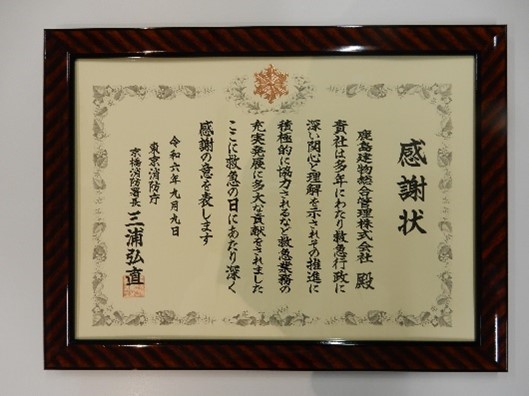 感謝状
鹿島建物総合管理株式会社 殿
貴社は多年にわたり救急行政に
深い関心と理解を示されその推進に
積極的に協力されるなど救急業務の
充実発展に多大な貢献をされました
ここに救急の日にあたり深く
感謝の意を表します
令和六年九月九日
東京消防庁
京橋消防署長 三浦弘直